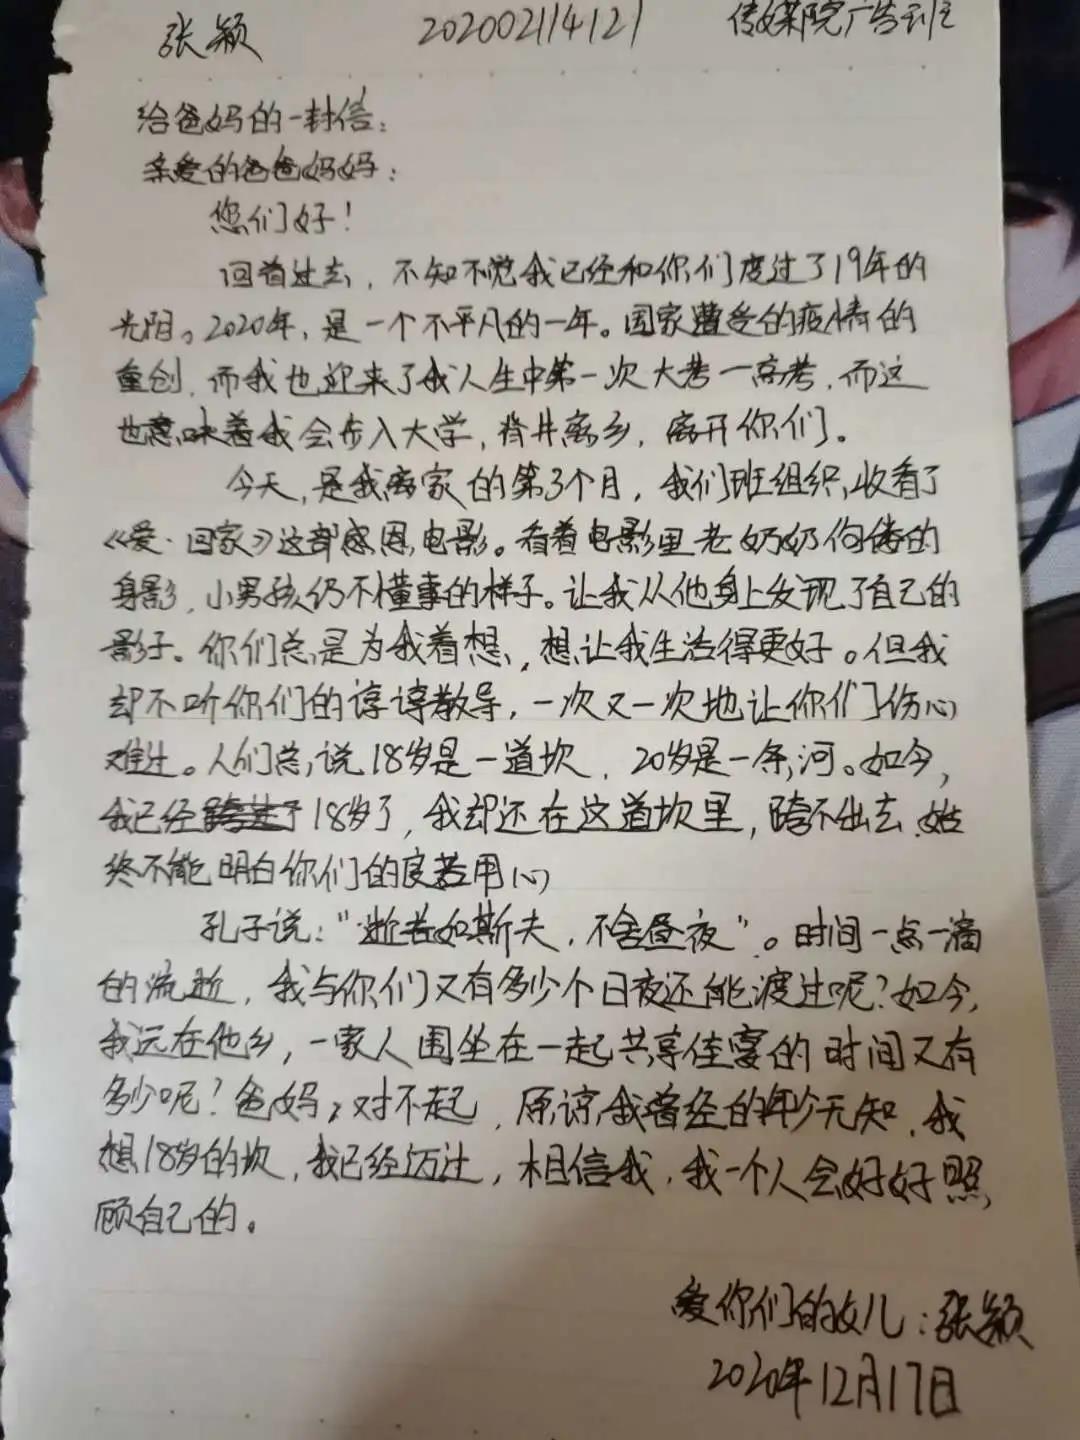 张颖 202002114121 传媒院广告班
给爸妈的一封信:
亲爱的爸爸妈妈:
您们好!
回首过去,不知不觉我已经和你们度过了19年的
光阴。2020年,是一个不平凡的一年。国家遭受的疫情的
重创,而我也迎来了我人生中第一次大考—高考,而这
也意味着我会步入大学,背井离乡,离开你们。
今天,是我离家的第3个月,我们班组织收看了
《爱·回家》这部感恩电影。看着电影里老奶奶佝偻的
身影,小男孩仍不懂事的样子。让我从他身上发现了自己的
影子。你们总是为我着想,想让我生活得更好。但我
却不听你们的谆谆教导,一次又一次地让你们伤心
难过。人们总说18岁是一道坎,20岁是一条河。如今,
我已经18岁了,我却还在这道坎里,跨不出去,始
终不能明白你们的良苦用心
孔子说:"逝者如斯夫,不舍昼夜"。时间一点一滴
的流逝,我与你们又有多少个日夜还能渡过呢?如今,
我远在他乡,一家人围坐在一起共享佳宴的时间又有
多少呢?爸,妈,对不起,原谅我曾经的年少无知,我
想18岁的坎,我已经迈过,相信我,我一个人会好好照
顾自己的。
爱你们的女儿:张颖
2020年12月17日